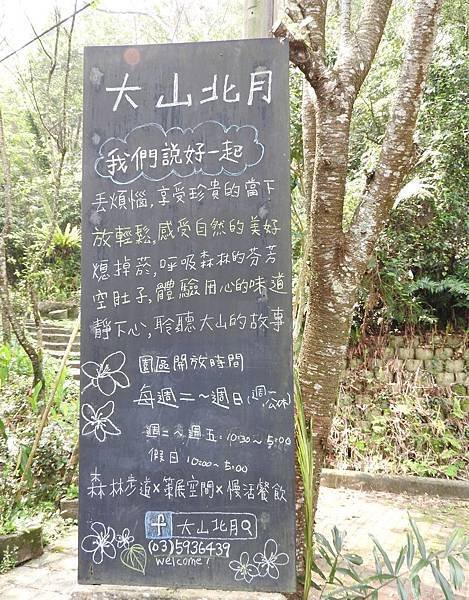 大山北月
我們說好一起
丟煩惱,享受珍貴的當下
放輕鬆,感受自然的美好
熄掉菸,呼吸森林的芬芳
空肚子,體驗用心的味道
靜下心,聆聽大山的故事
園區開放時間
每週二~週日(週一公休)
週二~週五:10:30~5:00
假日 10:00~5:00
森林步道×策展空間×慢活餐飲
f 大山北月
(03)5936439
welcome!